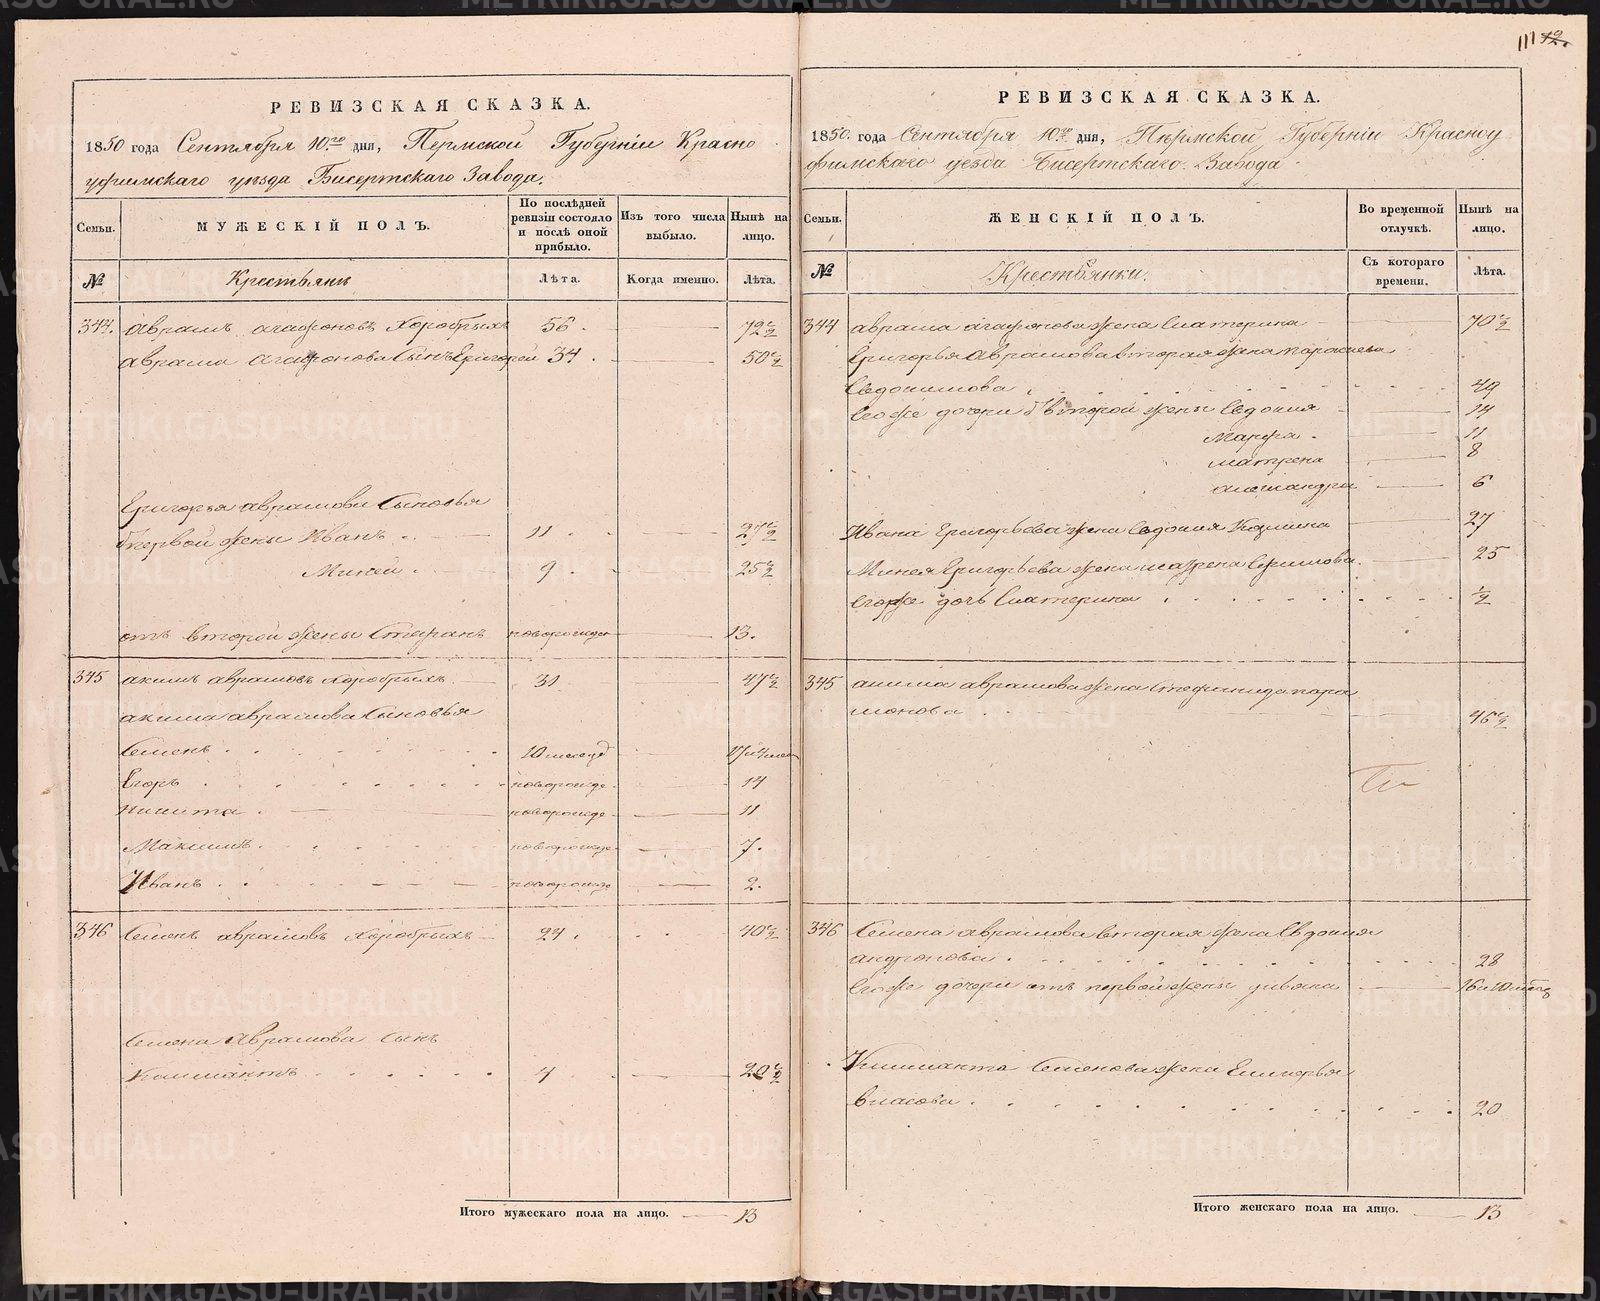 111 12.
РЕВИЗСКАЯ СКАЗКА.
1850 года Сентября 10го дня, Пермской Губерніи Красно
уфимскаго уѣзда Бисертскаго Завода.
Семьи.
МУЖЕСКІЙ ПОЛЪ.
По послѣдней ревизіи состояло и послѣ оной прибыло.
Изъ того числа выбыло.
Нынѣ на лицо.
№
Крестьянъ
Лѣта.
Когда именно.
Лѣта.
344. Аврамъ Агафоновъ Хоробрыхъ 56. 72 1/2
Аврама Агафонова Сынъ Григорей 34. 50 1/2
Григорья Аврамова Сыновья
б первой жены Иванъ 11 27 1/2
Миней 9. 25 1/2
отъ второй жены Степанъ новорожден 13.
345 Акимъ Аврамовъ Хоробрыхъ 31 47 1/2
Акима Аврамова Сыновья
Семенъ 10 месяц
Егоръ новорожде. 14
Никита новорожде. 11
Максимъ новорожде. 7.
Иванъ новорожде 2.
346 Семенъ Аврамовъ Хоробрыхъ 24. 40 1/2
Семена Аврамова Сынъ
4 20 1/2
Итого мужескаго пола на лицо. 13
РЕВИЗСКАЯ СКАЗКА.
1850. года Сентября 10го дня, Пермской Губерніи Красноу
фимскаго уезда Бисертскаго Завода
Семьи.
ЖЕНСКІЙ ПОЛЪ.
Во временной отлучкѣ.
Нынѣ на лицо.
№
Крестьянки.
Съ котораго времени.
Лѣта.
344 Аврама Агафонова жена Катерина 70 1/2
Григорья Аврамова вторая жена Парасковья
Евдокимова 49
Егоже дочери б второй жены Евдокия 14
Марфа. 11
Матрена 8
Александра 6
Ивана Григорьева жена Евдокия Козмина 27
Минея Григорьева жена 25
Егоже дочь Катерина 1/2
345 Акима Аврамова жена Стефанида Пара
монова 46 1/2
346 Семена Аврамова вторая жена Евдокия
Андронова. 28
Егоже дочери отъ первой жены Ульяна 16 и 10 месяц
Семенова жена Гликерья
Власова. 20
Итого женскаго пола на лицо. 13
METRIKI.GASO-URAL.RU